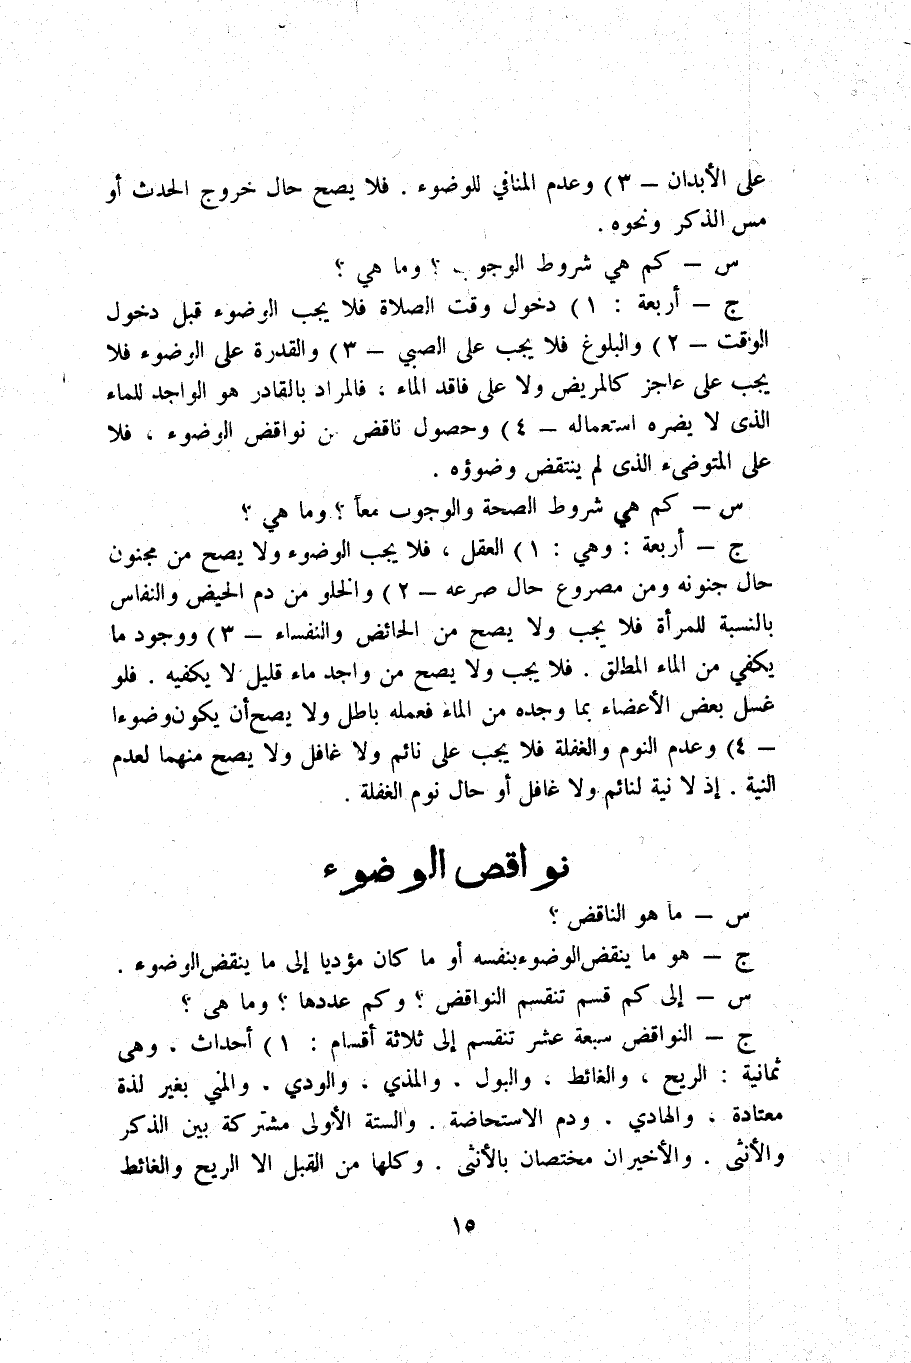 على الأبدان — ٣) وعدم المنافي للوضوء . فلا يصح حال خروج الحدث أو
مس الذكر ونحوه .
س — كم هي شروط الوجوب ؟ وما هي ؟
ج — أربعة : ١) دخول وقت الصلاة فلا يجب الوضوء قبل دخول
الوقت — ٢) والبلوغ فلا يجب على الصبي — ٣) والقدرة على الوضوء فلا
يجب على عاجز كالمريض ولا على فاقد الماء ، فالمراد بالقادر هو الواجد للماء
الذى لا يضره استعماله — ٤) وحصول ناقض من نواقض الوضوء ، فلا
على المتوضىء الذى لم ينتقض وضوؤه .
س — كم هي شروط الصحة والوجوب معاً ؟ وما هي ؟
ج — أربعة : وهي : ١) العقل ، فلا يجب الوضوء ولا يصح من مجنون
حال جنونه ومن مصروع حال صرعه — ٢) والخلو من دم الحيض والنفاس
بالنسبة للمرأة فلا يجب ولا يصح من الحائض والنفساء — ٣) ووجود ما
يكفي من الماء المطلق . فلا يجب ولا يصح من واجد ماء قليل لا يكفيه . فلو
غسل بعض الأعضاء بما وجده من الماء فعمله باطل ولا يصح أن يكون وضوءا
— ٤) وعدم النوم والغفلة فلا يجب على نائم ولا غافل ولا يصح منهما لعدم
النية . إذ لا نية لنائم ولا غافل أو حال نوم الغفلة .
نواقص الوضوء
س — ما هو الناقض ؟
ج — هو ما ينقض الوضوء بنفسه أو ما كان مؤديا إلى ما ينقض الوضوء .
س — إلى كم قسم تنقسم النواقض ؟ وكم عددها ؟ وما هى ؟
ج — النواقض سبعة عشر تنقسم إلى ثلاثة أقسام : ١) أحداث . وهى
ثمانية : الريح ، والغائط ، والبول . والمذي ، والودي . والمني بغير لذة
معتادة ، والهادي . ودم الاستحاضة . والستة الأولى مشتركة بين الذكر
والأنثى . والأخيران مختصان بالأنثى . وكلها من القبل الا الريح والغائط
١٥